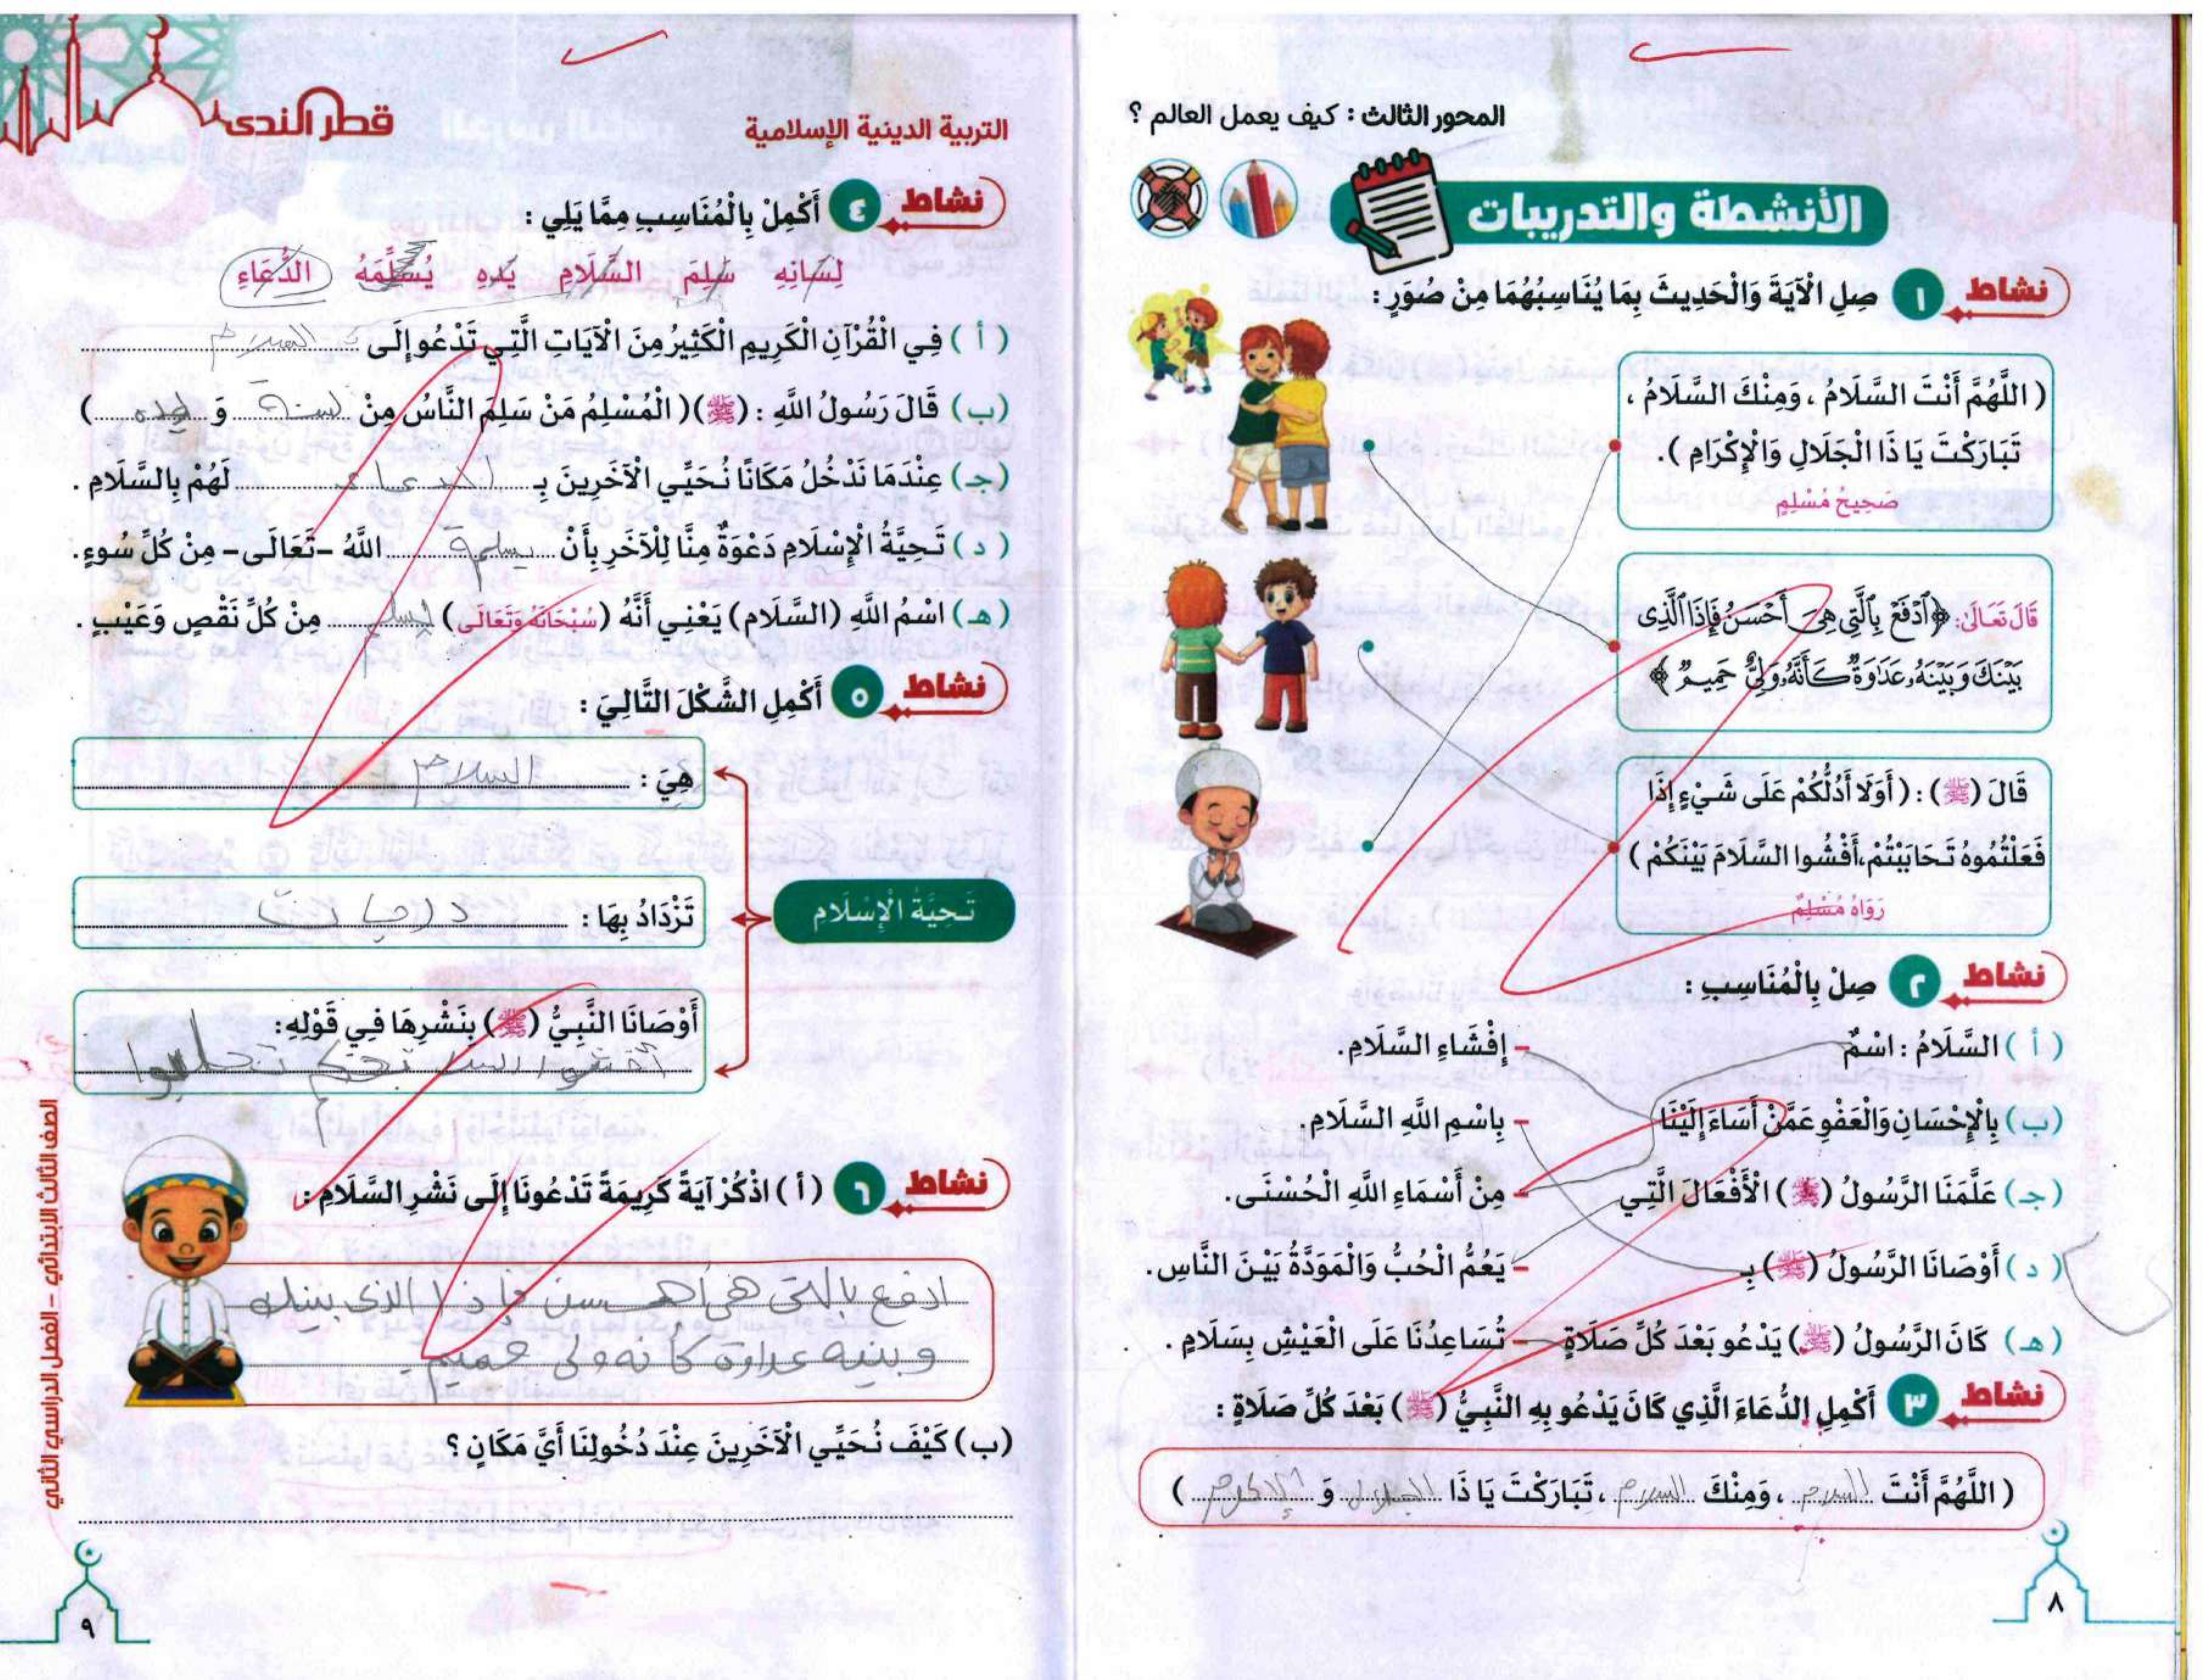 المحور الثالث : كيف يعمل العالم ؟
الأنشطة والتدريبات
نشاط ١ صِلِ الْآيَةَ وَالْحَدِيثَ بِمَا يُنَاسِبُهُمَا مِنْ صُوَرٍ :
( اللَّهُمَّ أَنْتَ السَّلَامُ ، وَمِنْكَ السَّلَامُ ،
تَبَارَكْتَ يَا ذَا الْجَلَالِ وَالْإِكْرَامِ ).
صَحِيحُ مُسْلِمٍ
قَالَ تَعَالَىٰ: ﴿ٱدْفَعْ بِٱلَّتِى هِىَ أَحْسَنُ فَإِذَا ٱلَّذِى
بَيْنَكَ وَبَيْنَهُۥ عَدَٰوَةٌ كَأَنَّهُۥ وَلِىٌّ حَمِيمٌ ﴾
قَالَ (ﷺ) : ( أَوَلَا أَدُلُّكُمْ عَلَى شَيْءٍ إِذَا
فَعَلْتُمُوهُ تَحَابَبْتُمْ، أَفْشُوا السَّلَامَ بَيْنَكُمْ )
رَوَاهُ مُسْلِمٌ
نشاط ٢ صِلْ بِالْمُنَاسِبِ :
( أ ) السَّلَامُ : اسْمٌ - إِفْشَاءِ السَّلَامِ.
(ب) بِالْإِحْسَانِ وَالْعَفْوِ عَمَّنْ أَسَاءَ إِلَيْنَا - بِاسْمِ اللَّهِ السَّلَامِ.
(جـ) عَلَّمَنَا الرَّسُولُ (ﷺ) الْأَفْعَالَ الَّتِي - مِنْ أَسْمَاءِ اللَّهِ الْحُسْنَى.
( د ) أَوْصَانَا الرَّسُولُ (ﷺ) بِـ - يَعُمُّ الْحُبُّ وَالْمَوَدَّةُ بَيْنَ النَّاسِ.
(هـ) كَانَ الرَّسُولُ (ﷺ) يَدْعُو بَعْدَ كُلِّ صَلَاةٍ - تُسَاعِدُنَا عَلَى الْعَيْشِ بِسَلَامٍ .
نشاط ٣ أَكْمِلِ الدُّعَاءَ الَّذِي كَانَ يَدْعُو بِهِ النَّبِيُّ (ﷺ) بَعْدَ كُلِّ صَلَاةٍ :
( اللَّهُمَّ أَنْتَ السلام ، وَمِنْكَ السلام ، تَبَارَكْتَ يَا ذَا الجلال وَ الاكرام )
٨
التربية الدينية الإسلامية
قطر الندى
نشاط ٤ أَكْمِلْ بِالْمُنَاسِبِ مِمَّا يَلِي :
لِسَانِهِ سَلِمَ السَّلَامِ يَدِهِ يُسَلِّمَهُ الدُّعَاءِ
( أ ) فِي الْقُرْآنِ الْكَرِيمِ الْكَثِيرُ مِنَ الْآيَاتِ الَّتِي تَدْعُو إِلَى السلام
(ب) قَالَ رَسُولُ اللَّهِ : (ﷺ) ( الْمُسْلِمُ مَنْ سَلِمَ النَّاسُ مِنْ لسنة وَ يده )
(جـ) عِنْدَمَا نَدْخُلُ مَكَانًا نُحَيِّي الْآخَرِينَ بِـ الدعاء لَهُمْ بِالسَّلَامِ .
( د ) تَحِيَّةُ الْإِسْلَامِ دَعْوَةٌ مِنَّا لِلْآخَرِ بِأَنْ يسلمة اللَّهُ -تَعَالَى- مِنْ كُلِّ سُوءٍ.
(هـ) اسْمُ اللَّهِ (السَّلَام) يَعْنِي أَنَّهُ (سُبْحَانَهُ وَتَعَالَى) يسلم مِنْ كُلِّ نَقْصٍ وَعَيْبٍ .
نشاط ٥ أَكْمِلِ الشَّكْلَ التَّالِيَ :
تَحِيَّةُ الْإِسْلَامِ
هِيَ : السلام
تَزْدَادُ بِهَا : درجات
أَوْصَانَا النَّبِيُّ (ﷺ) بِنَشْرِهَا فِي قَوْلِهِ:
نشاط ٦ ( أ ) اذْكُرْ آيَةً كَرِيمَةً تَدْعُونَا إِلَى نَشْرِ السَّلَامِ :
ادفع بالتى هى احسن فإذا الذى بينك
وبينه عداوة كانه ولى حميم
(ب) كَيْفَ نُحَيِّي الْآخَرِينَ عِنْدَ دُخُولِنَا أَيَّ مَكَانٍ ؟
الصف الثالث الابتدائي - الفصل الدراسي الثاني
٩